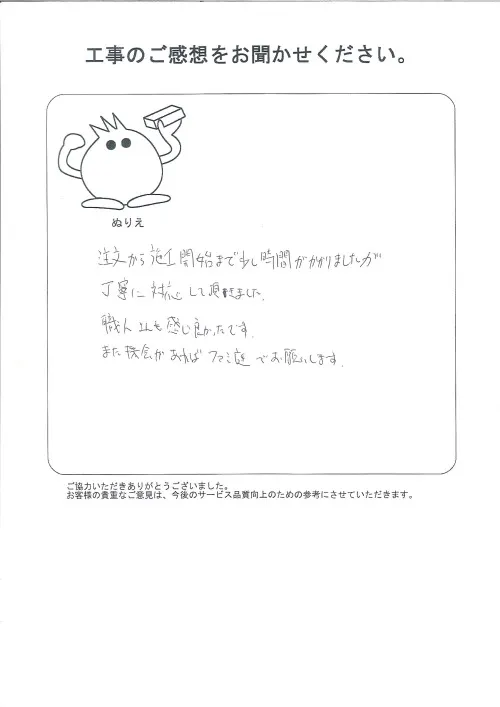 工事のご感想をお聞かせください。
ぬりえ
注文から施工開始まで少し時間がかかりましたが
丁寧に対応して頂きました。
職人さんも感じ良かったです。
また機会があればファミ庭でお願いします。
ご協力いただきありがとうございました。
お客様の貴重なご意見は、今後のサービス品質向上のための参考にさせていただきます。